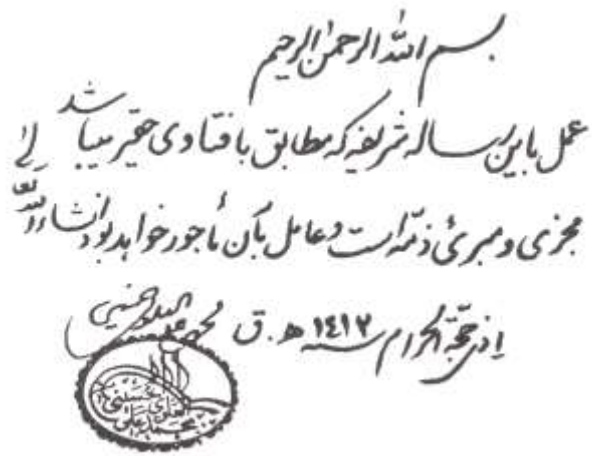 بسم الله الرحمن الرحیم
عمل باین رساله شریفه که مطابق با فتاوی حقیر میباشد
مجزی و مبرئ ذمّه است و عامل بآن مأجور خواهد بود انشاءالله
ذی حجّة الحرام سنه ۱۴۱۲ ه‍ . ق
محمد علی العلوی الحسینی